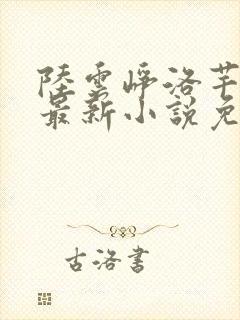 陸雲崢洛芊
最新小說免
古洛書